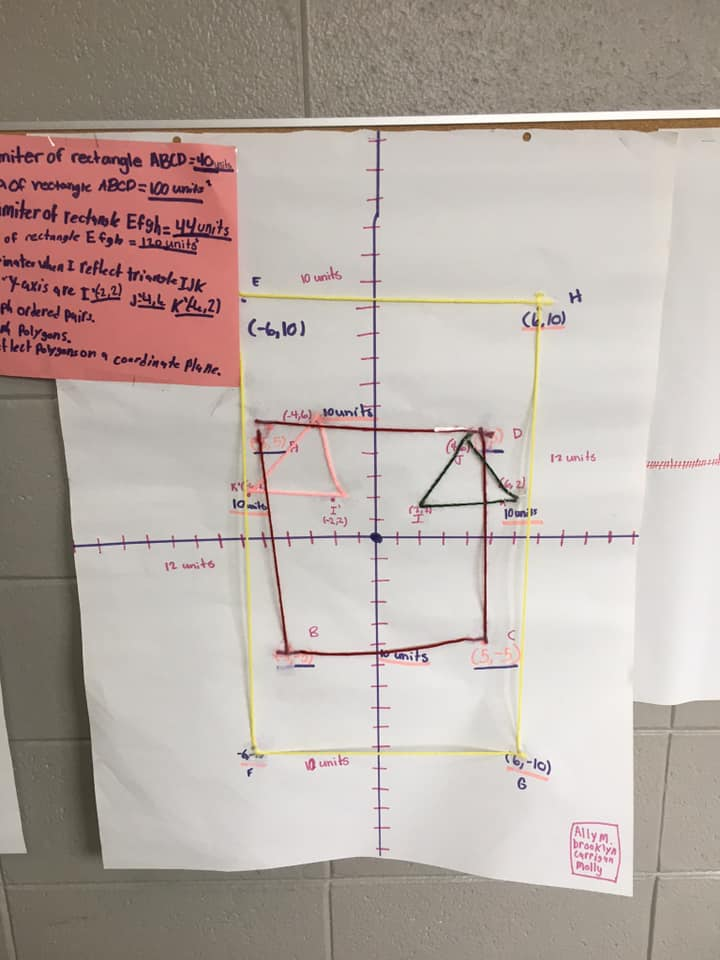 miter of rectangle ABCD = 40 units
of rectangle ABCD = 100 units²
miter of rectangle Efgh = 44 units
of rectangle Efgh = 120 units²
inates when I reflect triangle IJK
y-axis are I'(-2,2) J'-4,6 K'(-6,2)
ph ordered pairs.
Polygons.
flect Polygons on a coordinate Plane.
E
10 units
H
(-6,10)
(6,10)
(-4,6)
10 units
D
A
J
12 units
10 units
I'
(-2,2)
I
10 units
12 units
B
C
10 units
(5,-5)
F
10 units
(6,-10)
G
Ally M.
brooklyn
carrigan
Molly